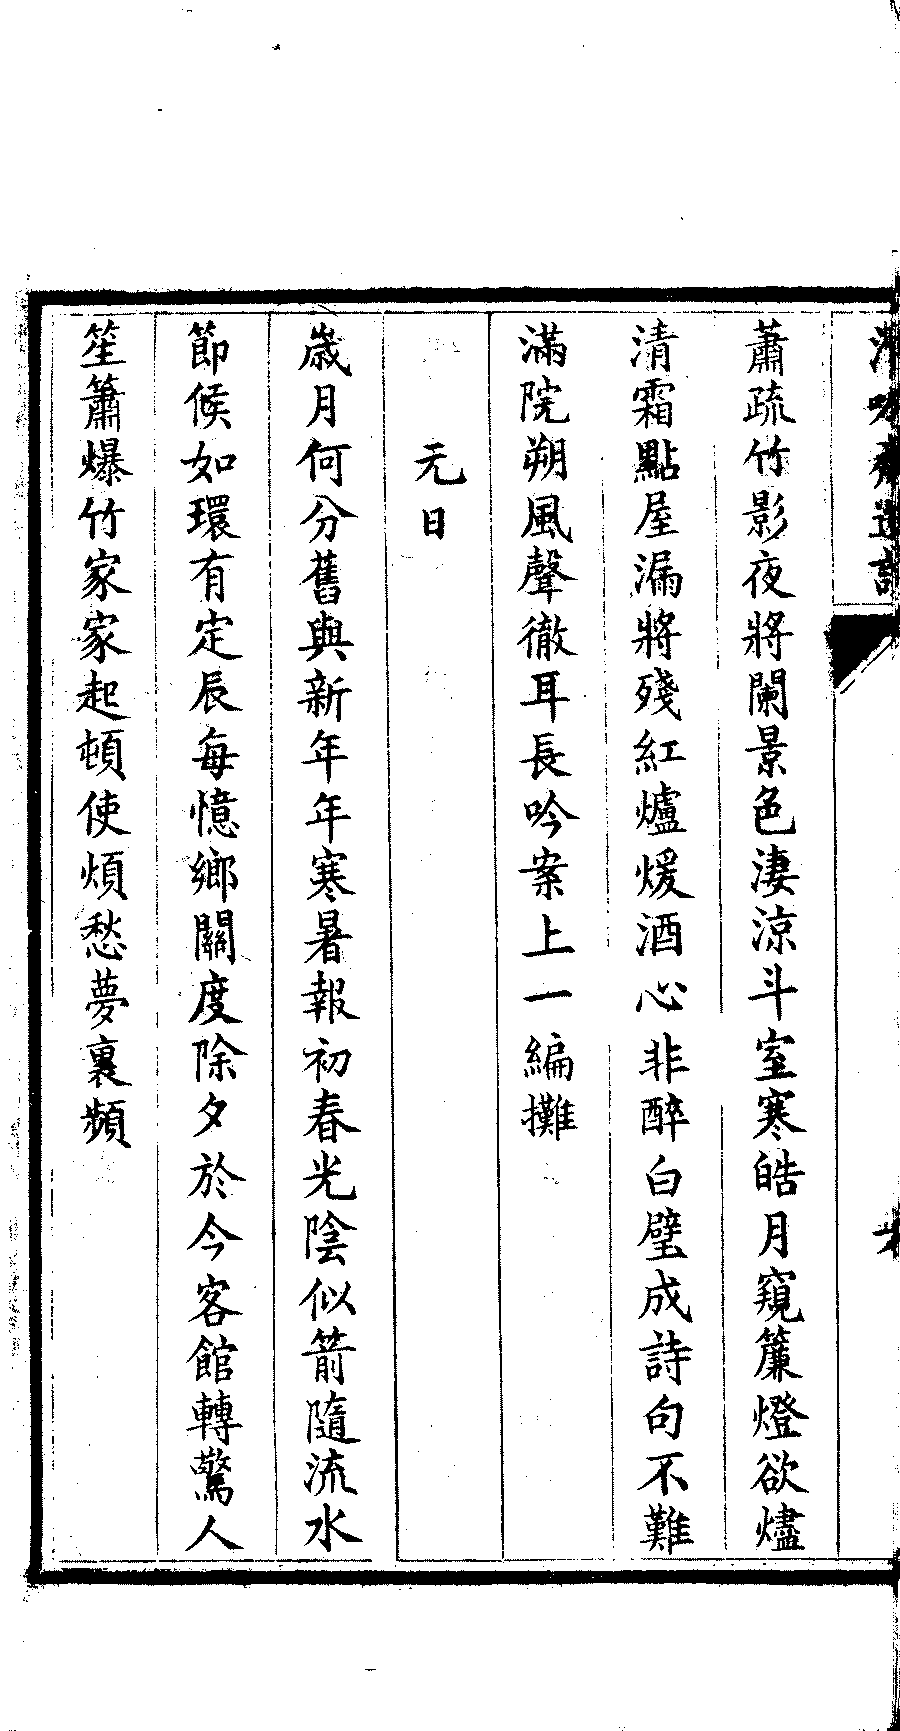 蕭疏竹影夜將闌景色淒涼斗室寒皓月窺簾燈欲燼
清霜點屋漏將殘紅爐煖酒心非醉白璧成詩句不難
滿院朔風聲徹耳長吟案上一編攤
元日
歲月何分舊與新年年寒暑報初春光陰似箭隨流水
節候如環有定辰每憶鄉關度除夕於今客館轉驚人
笙簫爆竹家家起頓使煩愁夢裏頻